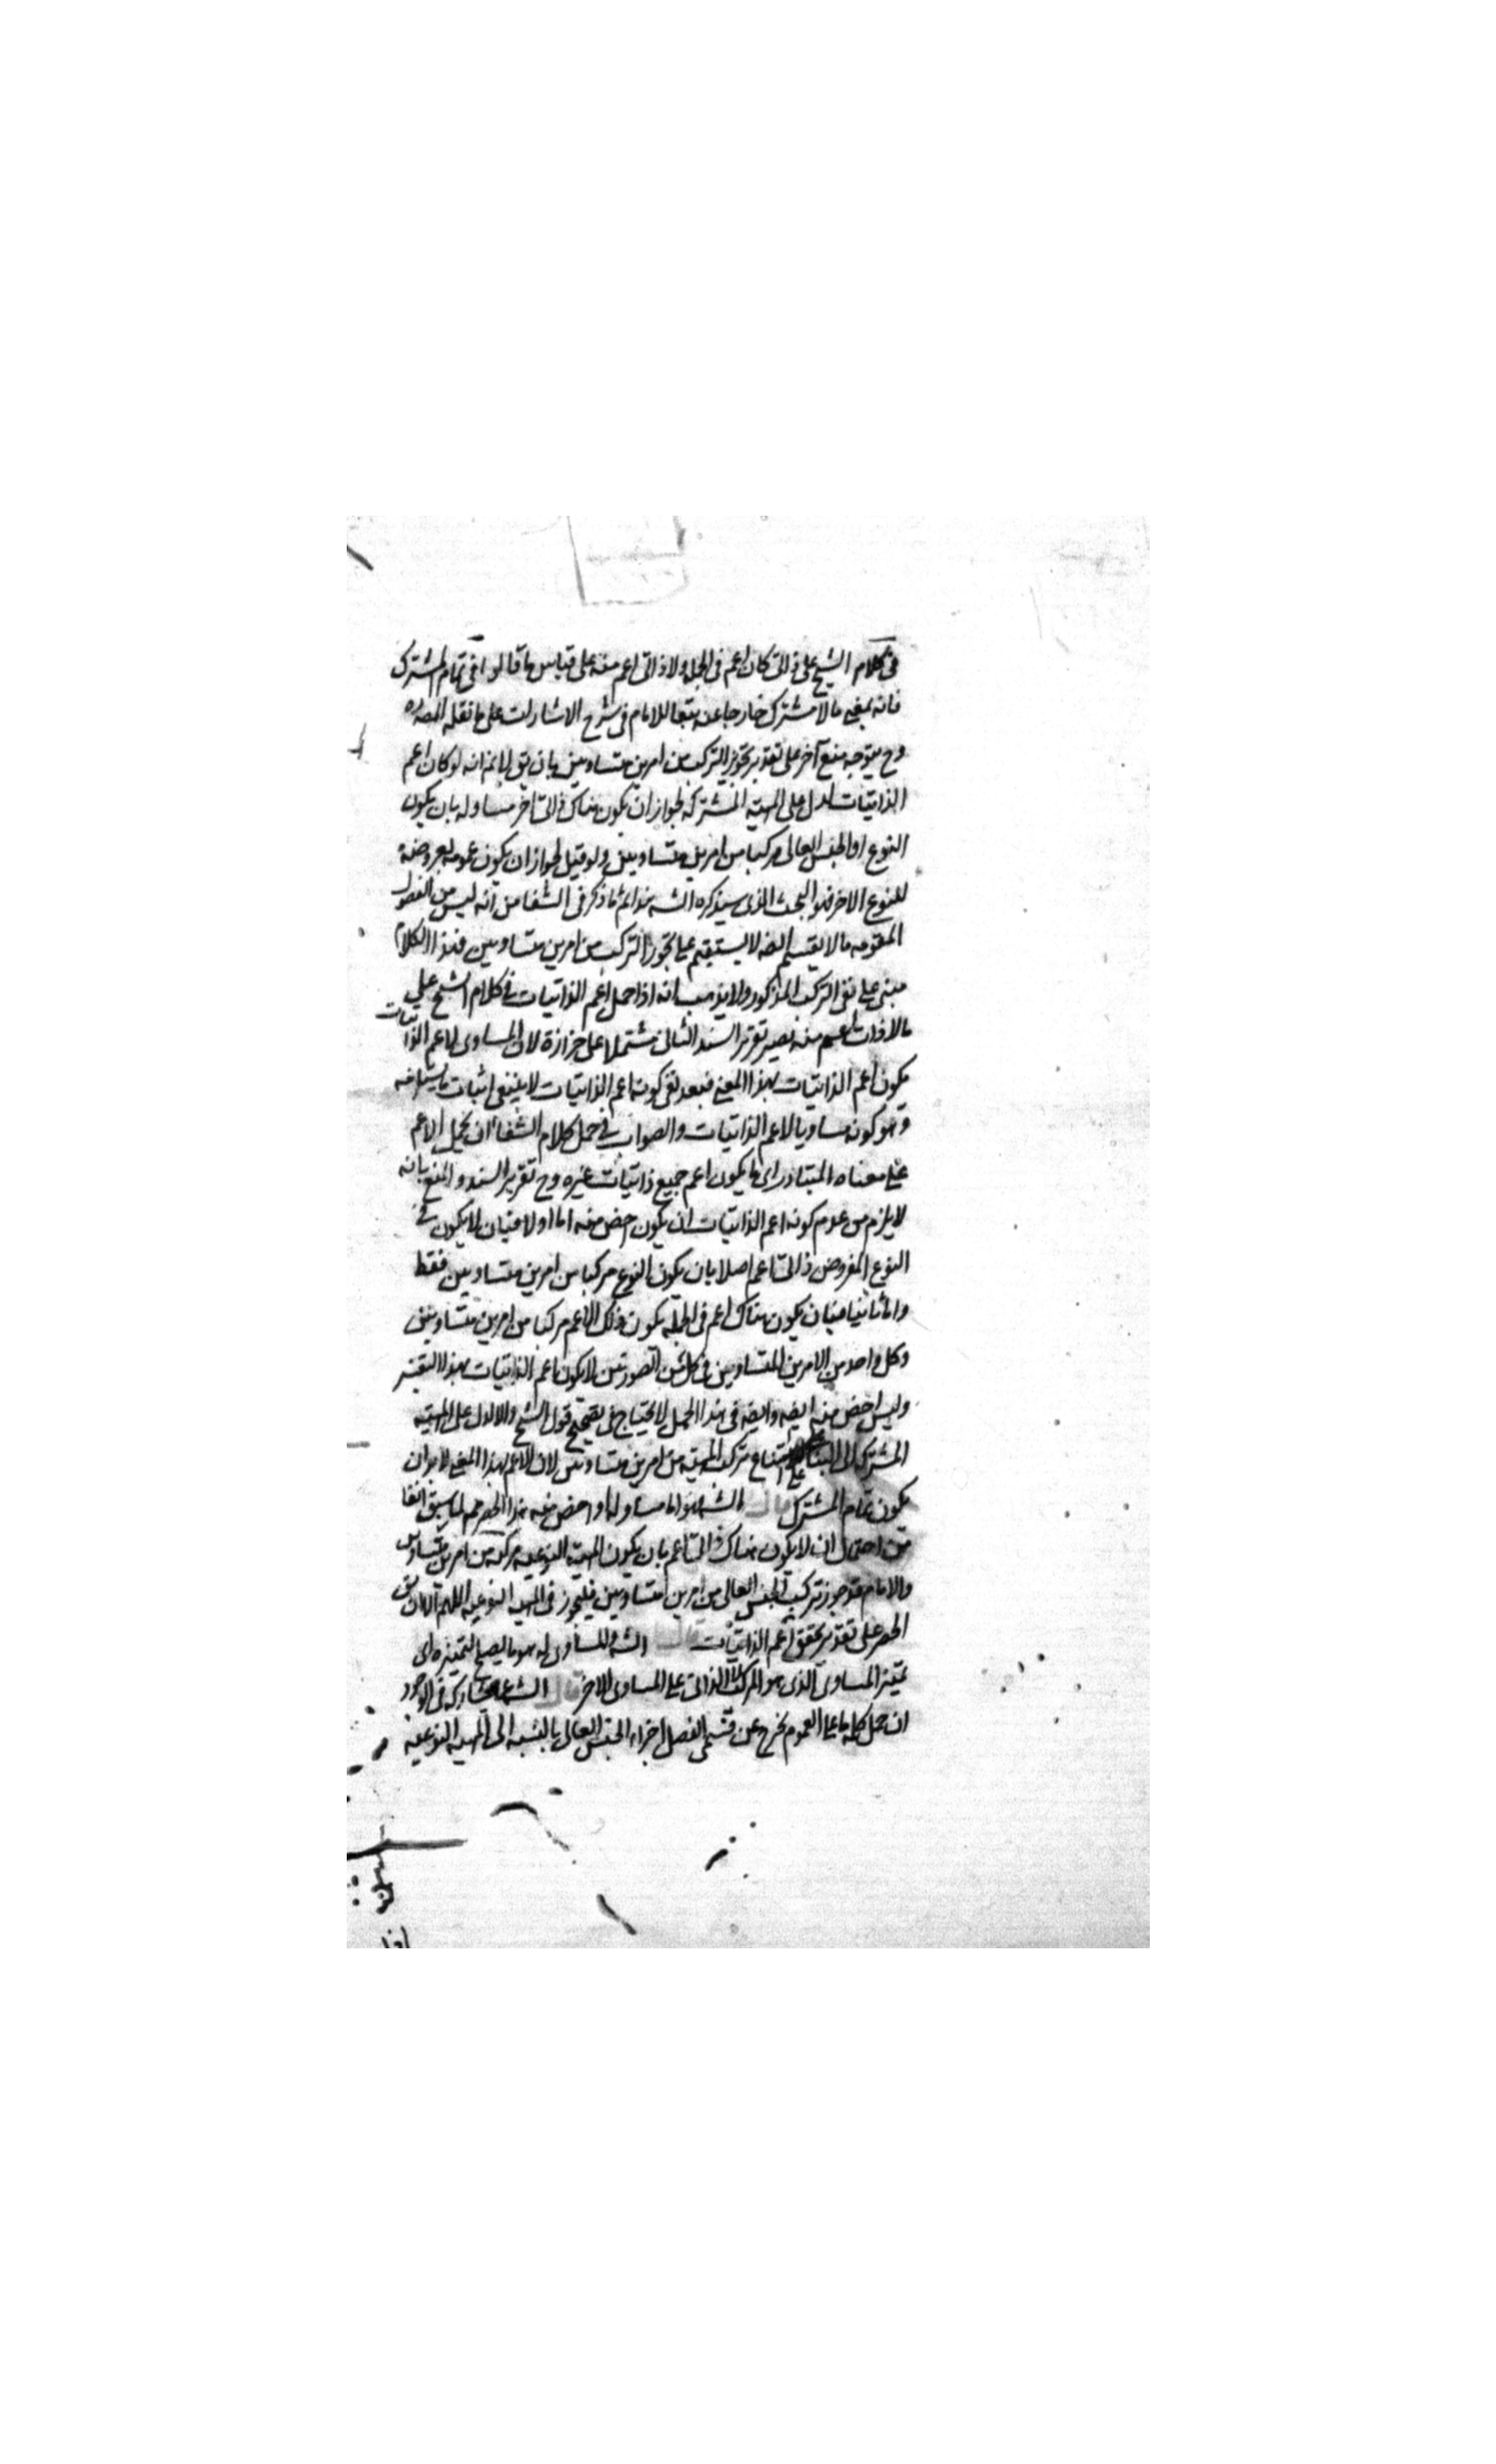 في كلام الشيخ على ذاتى كان اعم فى الجمله ولا ذاتى اعم منه على قياس ما قالوا فى تمام المشترك
فانه بمعنى ما لا مشترك خارجا عنه تبعا للامام فى شرح الاشارات على ما نقله المصره
وح يتوجه منع آخر على تقدير تجويز التركيب من امرين متساويين بان يق لانم انه لو كان اعم
الذاتيات لدل على المهية المشتركه لجواز ان يكون هناك ذاتى آخر مساو له بان يكون
النوع او الجنس العالى مركبا من امرين متساويين ولو قيل لجواز ان يكون عمومه بعروضه
للنوع الاخر فهو البحث الذى سيذكره الشه هذا ثم ما ذكر فى الشفا من انه ليس من الفصول
المقومه ما لا يقسم ايضه لا يستقيم على تجويز التركيب من امرين متساويين فهذا الكلام
مبنى على نفى التركيب المذكور ولا يذهب انه اذا حمل اعم الذاتيات فى كلام الشيخ على
ما لا ذاتى اعم منه يصير تقرير السند الثانى مشتملا على حزازة لان المساوى لاعم الذاتيات
يكون اعم الذاتيات بهذا المعنى فبعد نفى كونه اعم الذاتيات لا ينبغى اثبات ما يستلزمه
وهو كونه مساويا لاعم الذاتيات والصواب فى حمل كلام الشفا ان يحمل الاعم
على معناه المتبادر اى ما يكون اعم جميع ذاتيات غيره وح تقرير السند والمنع بانه
لا يلزم من عدم كونه اعم الذاتيات ان يكون اخص منه اما اولا فبان لا يكون فى
النوع المفروض ذاتى اعم اصلا بان يكون النوع مركبا من امرين متساويين فقط
واما ثانيا فبان يكون هناك اعم فى الجمله يكون ذلك الاعم مركبا من امرين متساويين
وكل واحد من الامرين المتساويين فى كل من الصورتين لا يكون اعم الذاتيات بهذا التفسير
وليس اخص منه ايضه وايضه فى هذا الحمل لا يحتاج فى تصحيح قول الشيخ والا لدل على المهية
المشتركه الى البناء على امتناع تركب المهية من امرين متساويين لان الاعم بهذا المعنى لابد ان
يكون تمام المشترك قال الشه فهو اما مساو له او اخص منه هذا الحصر مم لما سبق آنفا
من احتمال ان لا يكون هناك ذاتى اعم بان يكون المهية النوعيه مركبه من امرين متساويين
والامام قد جوز تركب الجنس العالى من امرين متساويين فليجوز فى المهية النوعيه اللهم الا ان يق
الحصر على تقدير تحقق اعم الذاتيات قال الشه والمساوى له هو ما يصلح لتميزه اى
تميز المساوى الذى هو المركب الذاتى على المساوى الاخر قال الشه عما يشاركه فى الوجود
ان حمل كلمه ما على العموم يخرج عن قسمى الفصل اجزاء الجنس العالى بالنسبه الى المهية النوعيه